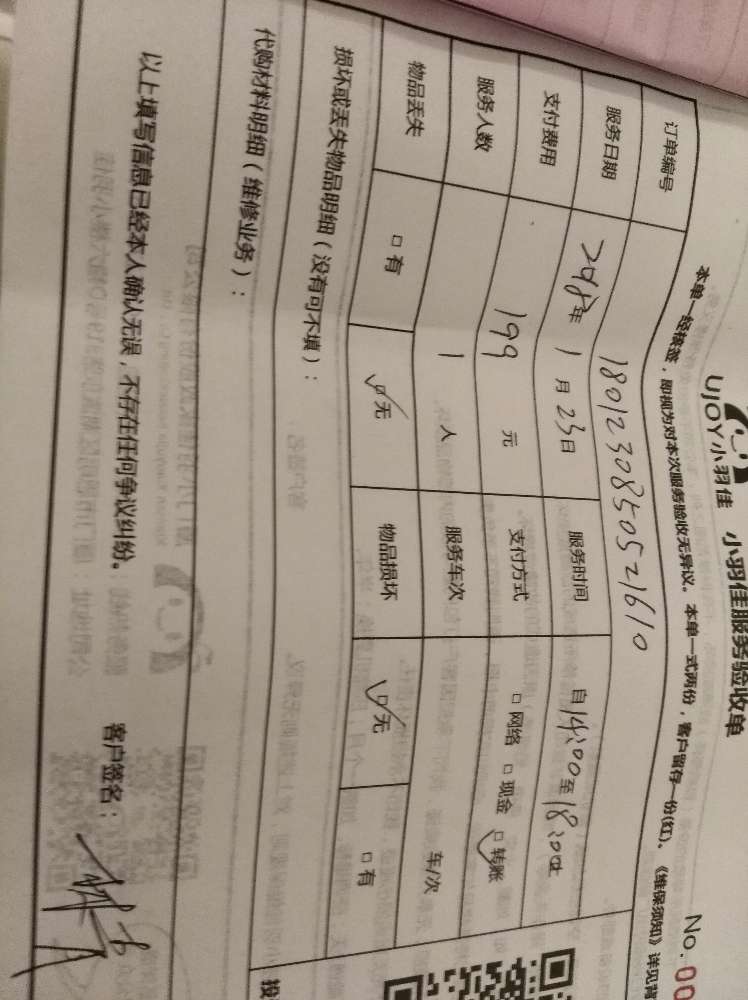 UJOY小羽佳 小羽佳服务验收单
No.00
本单一经核签，即视为对本次服务验收无异议。本单一式两份，客户留存一份(红)。《维保须知》详见背
订单编号 1801230850521610
服务日期 年 1 月 23 日 服务时间 自 14:00 至 18:00止
支付费用 199 元 支付方式 □网络 □现金 ☑转账
服务人数 1 人 服务车次 车/次
物品丢失 □有 ☑无 物品损坏 ☑无 □有
损坏或丢失物品明细（没有可不填）：
代购材料明细（维修业务）：
投
以上填写信息已经本人确认无误，不存在任何争议纠纷。 客户签名：